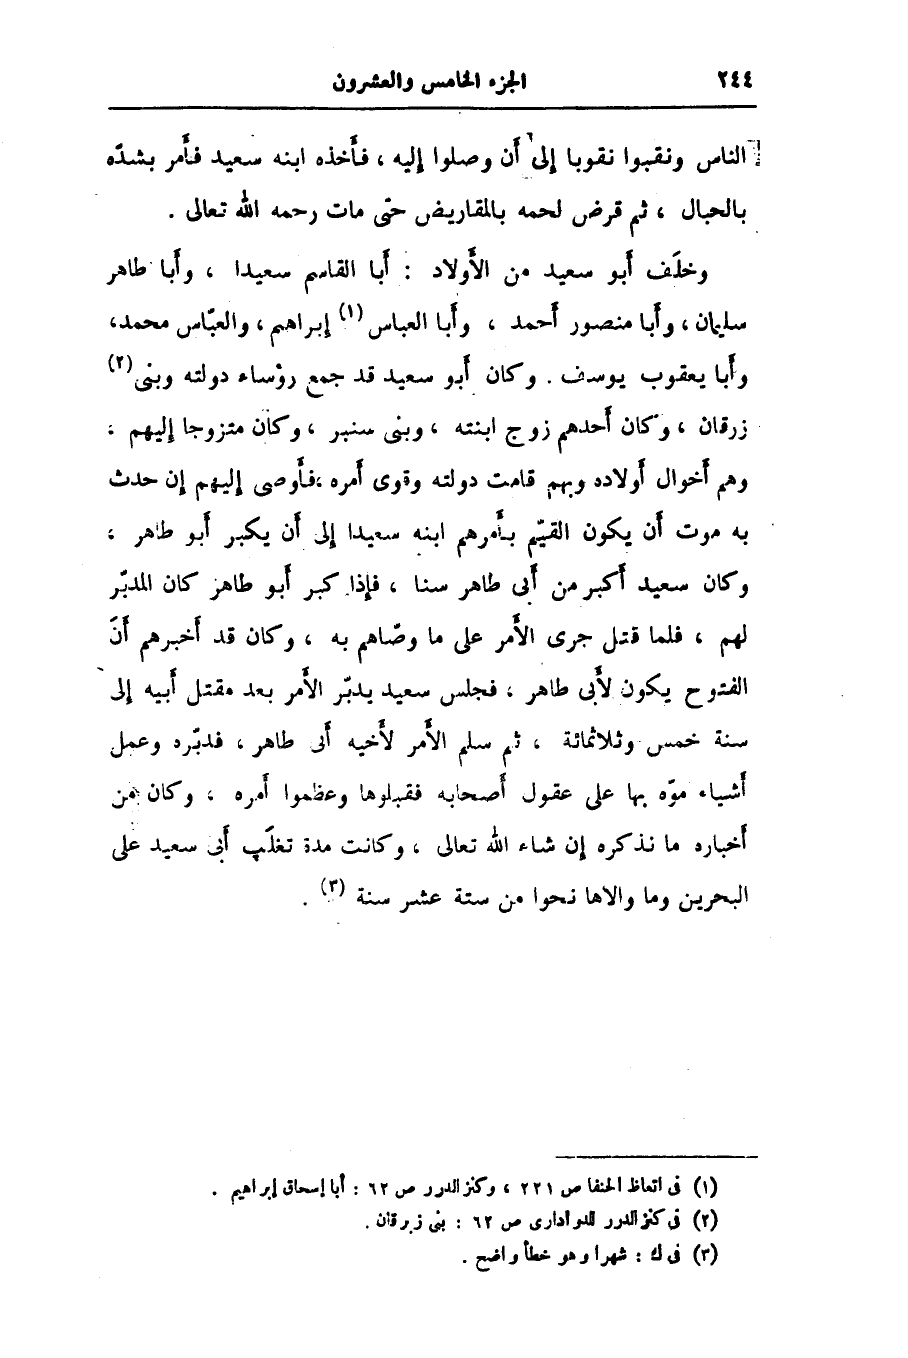 ٢٤٤ الجزء الخامس والعشرون
الناس ونقبوا نقوبا إلى أن وصلوا إليه ، فأخذه ابنه سعيد فأمر بشدّه
بالحبال ، ثم قرض لحمه بالمقاريض حتّى مات رحمه الله تعالى .
وخلّف أبو سعيد من الأولاد : أبا القاسم سعيدا ، وأبا طاهر
سليمان ، وأبا منصور أحمد ، وأبا العباس (١) إبراهيم ، والعبّاس محمد،
وأبا يعقوب يوسف . وكان أبو سعيد قد جمع رؤساء دولته وبنى (٢)
زرقان ، وكان أحدهم زوج ابنته ، وبنى سنبر ، وكان متزوجا إليهم ،
وهم أخوال أولاده وبهم قامت دولته وقوى أمره ،فأوصى إليهم إن حدث
به موت أن يكون القيّم بأمرهم ابنه سعيدا إلى أن يكبر أبو طاهر ،
وكان سعيد أكبر من أبى طاهر سنا ، فإذا كبر أبو طاهر كان المدبّر
لهم ، فلما قتل جرى الأمر على ما وصّاهم به ، وكان قد أخبرهم أنّ
الفتوح يكون لأبى طاهر ، فجلس سعيد يدبّر الأمر بعد مقتل أبيه إلى
سنة خمس وثلاثمائة ، ثم سلم الأمر لأخيه أبى طاهر ، فدبّره وعمل
أشياء موّه بها على عقول أصحابه فقبلوها وعظموا أمره ، وكان من
أخباره ما نذكره إن شاء الله تعالى ، وكانت مدة تغلّب أبى سعيد على
البحرين وما والاها نحوا من ستة عشر سنة (٣) .
(١) فى اتعاظ الحنفا ص ٢٢١ ، وكنز الدرر ص ٦٢ : أبا إسحاق إبراهيم .
(٢) فى كنز الدرر للدوادارى ص ٦٢ : بنى زبرقان .
(٣) فى ك : شهرا وهو خطأ واضح .